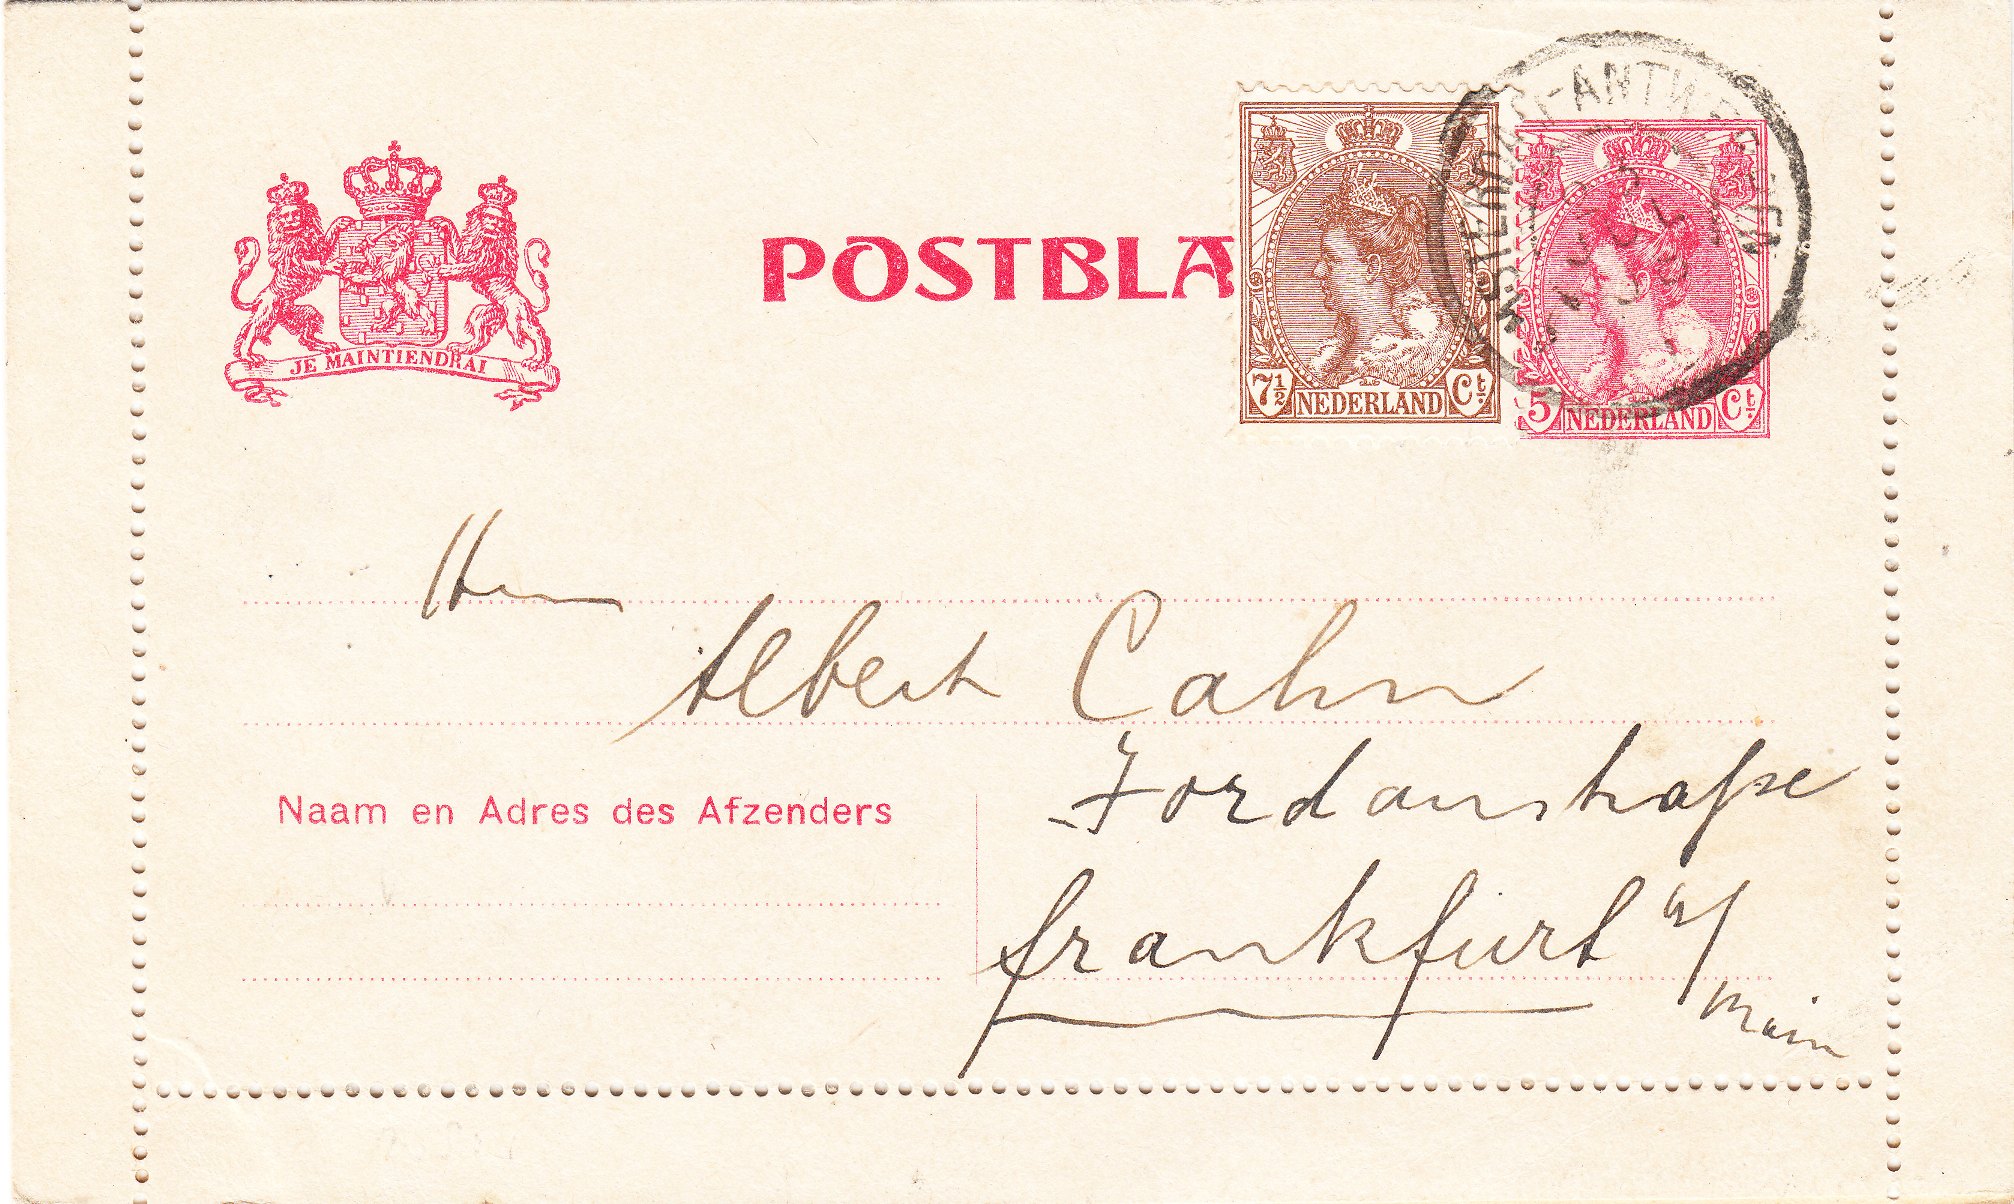 JE MAINTIENDRAI
POSTBLA
7½ NEDERLAND Ct.
5 NEDERLAND Ct.
AMSTERDAM-ANTWERPEN
Herrn
Albert Cahn
Jordanstraße
Frankfurt a/
Main
Naam en Adres des Afzenders